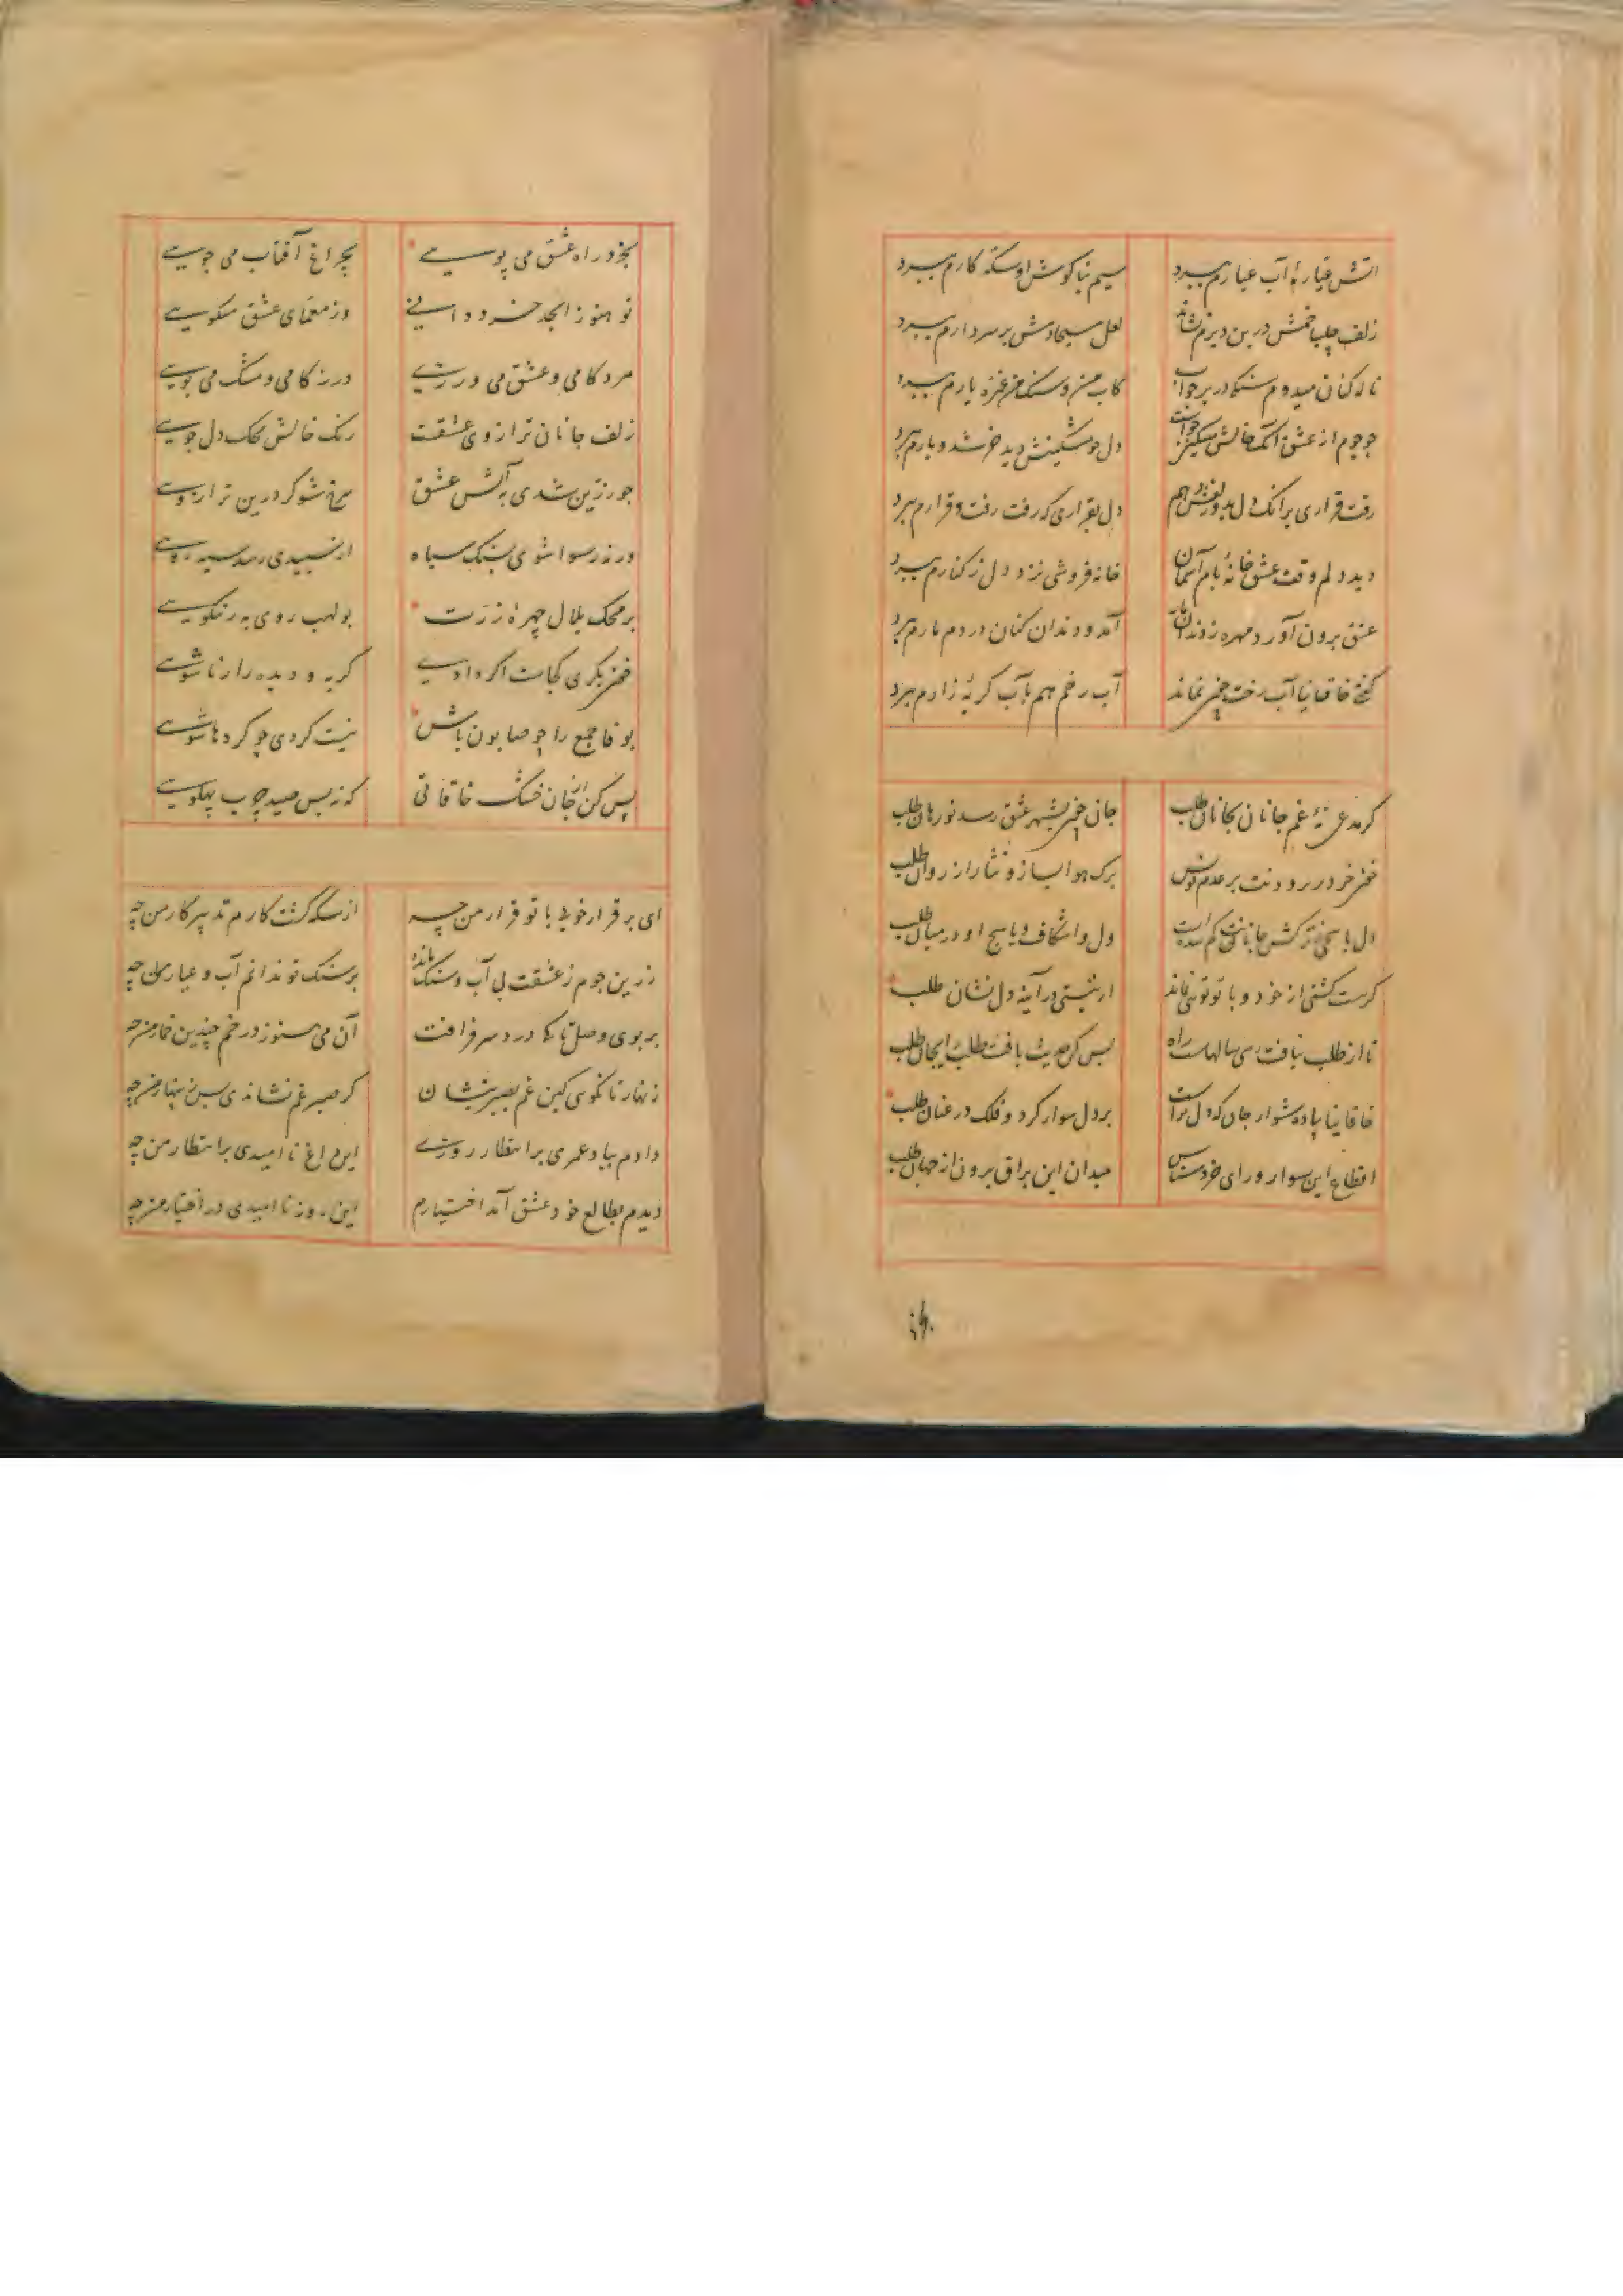 آتش عیاره آب عیارم ببرد سیم بناکوش او سکه کارم ببرد
زلف چلیپا خمش در بن دیرم نشاند لعل مسیحا دمش بر سر دارم ببرد
ناله کنان میدوم سنک در بر جو آب کاب من و سنک من غمزه یارم ببرد
جو جوم از عشق آنک خالش مشکین جو است دل جو مشکینش دید خر شد و بارم ببرد
رفت قراری بر آنک دل بدو زلفش دهم دل بقراری که رفت رفت و قرارم ببرد
دید دلم وقف عشق خانهٔ بام آسمان خانه فروشی بزد دل ز کنارم ببرد
عشق برون آورد مهره ز دندان مار آمد و دندان کنان در دم مارم ببرد
کفتی خاقانیا آب رخت چون نماند آب رخم هم بآب کریهٔ زارم ببرد
کر مدعی نهٔ غم جانان بجان طلب جان چون بشهر عشق رسد نورهان طلب
خون خرد بریز و دیت بر عدم نویس برک هوا بساز و نثار از روان طلب
دل یاسج کش جانانت کم شده است دل واشکاف و یاسج او در میان طلب
کرست کشتی از خود و با تو توئی نماند ار نیستی در آینه دل نشان طلب
تا از طلب بیافت رسی سالهاست راه بس کن حدیث یافت طلب را بجان طلب
خاقانیا پیاده شو از جان که دل تراست بر دل سوار کرد و فلک در عنان طلب
اقطاع این سوار ورای خرد شناس میدان این براق برون از جهان طلب
بخرد راه عشق می پویی بچراغ آفتاب می جویی
تو هنوز ابجد خرد دانی وز معمای عشق میکویی
مرد کامی و عشق می ورزی در زکامی و مشک می بویی
زلف جانان ترازوی عشقت رنک خالش محک دل جویی
جو زرین شدی به آتش عشق سرخ شو کر درین ترازویی
ورنه رسوا شوی بسنک سیاه از سپیدی رسد سیه رویی
بر محک بلال چهرهٔ زرت بولهب روی به ز نیکویی
خون بکری کجاست اکر دادی کریه و دیده را زناشویی
بوفا جمع را چو صابون باش نیست کردی چو کرد ها شویی
بس کن از جان خشک خاقانی که نه بس صید چرب پهلویی
ای بر قرار خوبی با تو قرار من چه از سکه کشت کارم تدبیر کار من چه
زرین جوم ز عشقت بی آب و سنک مانده بر سنک تو ندانم آب و عیار من چه
بر بوی وصل تا کی درد سر فراقت آن می هنوز در خم چندین خمار من چه
زنهار تا نکویی کین غم بصبر بنشان کر صبر غم نشاندی پس زینهار من چه
دادم بباد عمری بر انتظار روزی این داغ نا امیدی بر انتظار من چه
دیدم بطالع خود عشق آمد اختیارم این روز نا امیدی در اختیار من چه